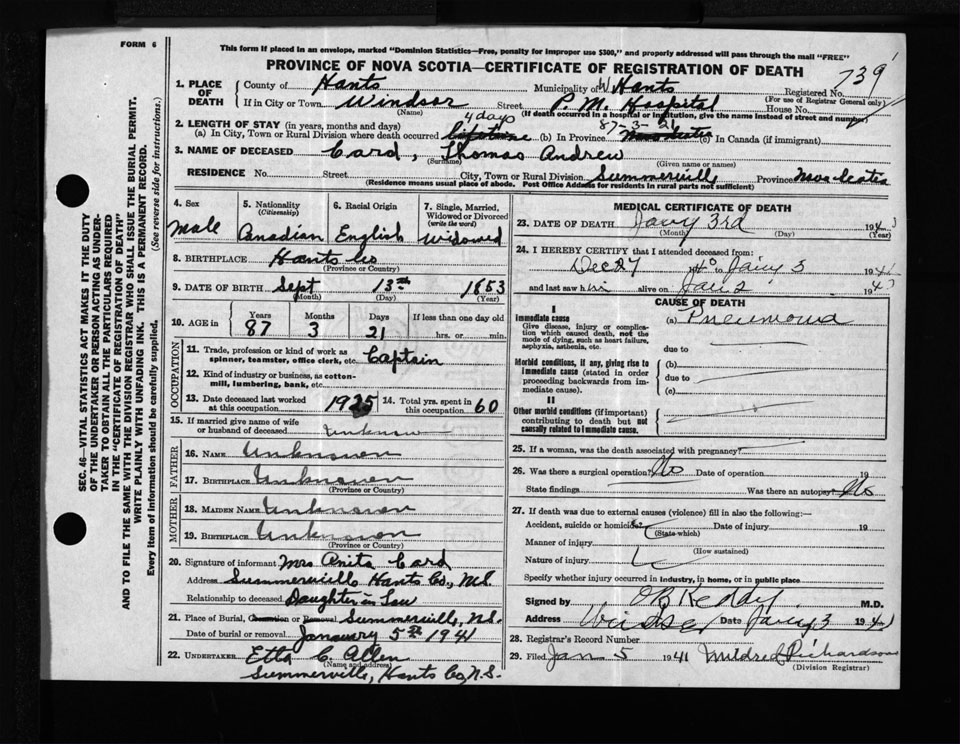 FORM 6
This form if placed in an envelope, marked "Dominion Statistics—Free, penalty for improper use $300," and properly addressed will pass through the mail "FREE"
PROVINCE OF NOVA SCOTIA—CERTIFICATE OF REGISTRATION OF DEATH
739
1. PLACE OF DEATH
County of Hants Municipality of W. Hants Registered No.
(For use of Registrar General only)
If in City or Town Windsor Street P. M. Hospital House No.
(Name) (If death occurred in a hospital or institution, give the name instead of street and number)
2. LENGTH OF STAY (in years, months and days)
4 days 87-3-21
(a) In City, Town or Rural Division where death occurred lifetime (b) In Province Nova Scotia (c) In Canada (if immigrant)
3. NAME OF DECEASED Card, Thomas Andrew
(Surname) (Given name or names)
RESIDENCE No. Street City, Town or Rural Division Summerville Province Nova Scotia
(Residence means usual place of abode. Post Office Address for residents in rural parts not sufficient)
4. Sex Male
5. Nationality (Citizenship) Canadian
6. Racial Origin English
7. Single, Married, Widowed or Divorced (write the word) Widowed
8. BIRTHPLACE Hants Co
(Province or Country)
9. DATE OF BIRTH Sept 13th 1853
(Month) (Day) (Year)
10. AGE in Years Months Days If less than one day old
87 3 21 hrs. or min.
OCCUPATION
11. Trade, profession or kind of work as spinner, teamster, office clerk, etc. Captain
12. Kind of industry or business, as cotton-mill, lumbering, bank, etc.
13. Date deceased last worked at this occupation 1925
14. Total yrs. spent in this occupation 60
15. If married give name of wife or husband of deceased unknown
FATHER
16. NAME Unknown
17. BIRTHPLACE Unknown
(Province or Country)
MOTHER
18. MAIDEN NAME Unknown
19. BIRTHPLACE Unknown
(Province or Country)
20. Signature of informant Mrs Anita Card
Address Summerville Hants Co., N.S.
Relationship to deceased Daughter in Law
21. Place of Burial, Cremation or Removal Summerville, N.S.
Date of burial or removal January 5th 1941
22. UNDERTAKER Etta C. Allen
(Name and address)
Summerville, Hants Co, N.S.
MEDICAL CERTIFICATE OF DEATH
23. DATE OF DEATH Jany 3rd 194
(Month) (Day) (Year)
24. I HEREBY CERTIFY that I attended deceased from:
Dec 27 to Jany 3 194
and last saw him alive on Jan 2 194
CAUSE OF DEATH
I
Immediate cause
Give disease, injury or complication which caused death, not the mode of dying, such as heart failure, asphyxia, asthenia, etc.
(a) Pneumonia
due to
Morbid conditions, if any, giving rise to immediate cause (stated in order proceeding backwards from immediate cause).
(b)
due to
(c)
II
Other morbid conditions (if important) contributing to death but not causally related to immediate cause.
25. If a woman, was the death associated with pregnancy?
26. Was there a surgical operation? No Date of operation 19
State findings Was there an autopsy? No
27. If death was due to external causes (violence) fill in also the following:—
Accident, suicide or homicide? Date of injury 19
(State which)
Manner of injury
(How sustained)
Nature of injury
Specify whether injury occurred in industry, in home, or in public place
Signed by O B Keddy M.D.
Address Windsor Date Jany 3 194
28. Registrar's Record Number
29. Filed Jan 5 1941 Mildred Richardson
(Division Registrar)
SEC. 46—VITAL STATISTICS ACT MAKES IT THE DUTY
OF THE UNDERTAKER OR PERSON ACTING AS UNDER-
TAKER TO OBTAIN ALL THE PARTICULARS REQUIRED
IN THE "CERTIFICATE OF REGISTRATION OF DEATH"
AND TO FILE THE SAME WITH THE DIVISION REGISTRAR WHO SHALL ISSUE THE BURIAL PERMIT.
WRITE PLAINLY WITH UNFADING INK. THIS IS A PERMANENT RECORD.
Every item of information should be carefully supplied. (See reverse side for instructions.)